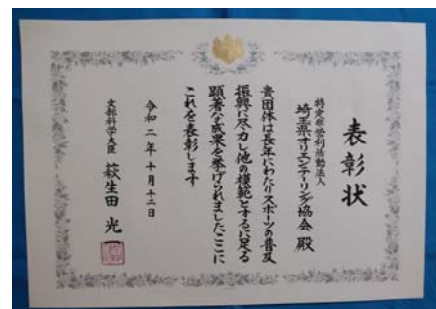 表彰状
特定非営利活動法人
埼玉県オリエンテーリング協会 殿
貴団体は長年にわたりスポーツの普及
振興に尽力し他の模範とするに足る
顕著な成果を挙げられましたここに
これを表彰します
令和二年十月十二日
文部科学大臣 萩生田 光一